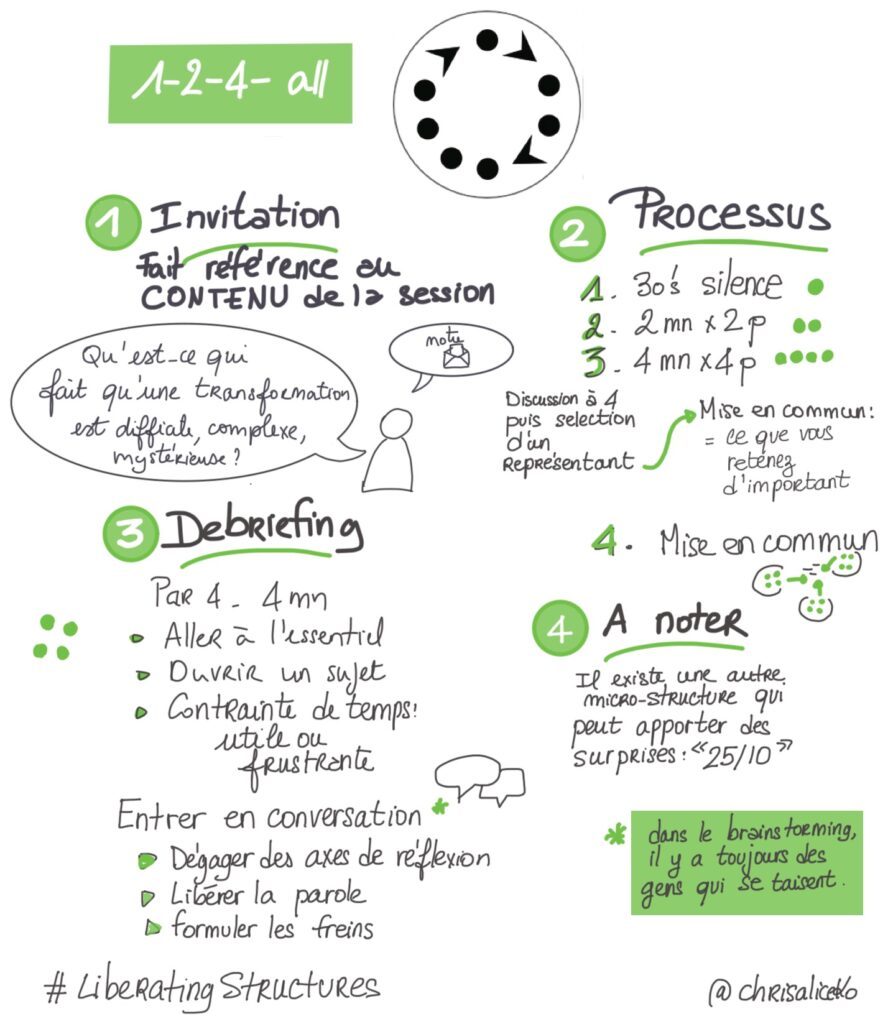 1-2-4- all
1 Invitation
Fait référence au
CONTENU de la session
Qu'est-ce qui
fait qu'une transformation
est difficile, complexe,
mystérieuse ?
2 Processus
1. 30's silence
2. 2 mn x 2 p
3. 4 mn x 4 p
Discussion à 4
puis selection
d'un
Représentant
Mise en commun :
= ce que vous
retenez
d'important
4. Mise en commun
3 Debriefing
Par 4 - 4 mn
Aller à l'essentiel
Ouvrir un sujet
Contrainte de temps !
utile ou
frustrante
Entrer en conversation *
Dégager des axes de réflexion
Libérer la parole
formuler les freins
4 A noter
Il existe une autre
micro-structure qui
peut apporter des
surprises : "25/10"
* dans le brainstorming,
il y a toujours des
gens qui se taisent.
# Liberating Structures